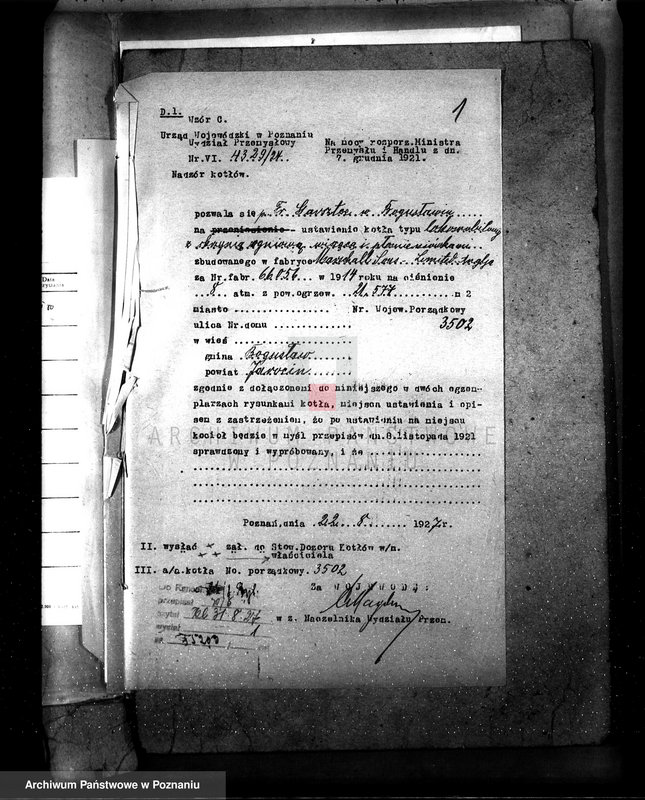 1
D.1.
Wzór C.
Urząd Wojewódzki w Poznaniu
Wydział Przemysłowy
Nr.VI.
Na mocy rozporz.Ministra
Przemysłu i Handlu z dn.
7. grudnia 1921.
Nadzór kotłów.
pozwala się p. Fr.
na przeniesienie - ustawienie kotła typu
z skrzynią ogniową
zbudowanego w fabryce Marshall Sons Limited
za Nr.fabr. 66856 w 1914 roku na ciśnienie
8. atm. z pow.ogrzew. 21.577 m 2
miasto Nr. Wojew.Porządkowy
ulica Nr.domu 3502
w wieś
gmina Bogusław
powiat Jarocin
zgodnie z dołączonemi do niniejszego w dwóch egzem-
plarzach rysunkami kotła, miejsca ustawienia i opi-
sem z zastrzeżeniem, że po ustawieniu na miejscu
kocioł będzie w myśl przepisów dn.8.listopada 1921
sprawdzony i wypróbowany, i że
ARCHIWUM PAŃSTWOWE
W POZNANIU
Poznań,dnia 22. 8. 1927r.
II. wysłać zał. do Stow.Dozoru Kotłów w/m.
właściciela
III. a/a.kotła No. porządkowy. 3502
Za WOJEWODĘ:
przepisał
czytał 31.8.27
wysłał
w z. Naczelnika Wydziału Przem.
Archiwum Państwowe w Poznaniu